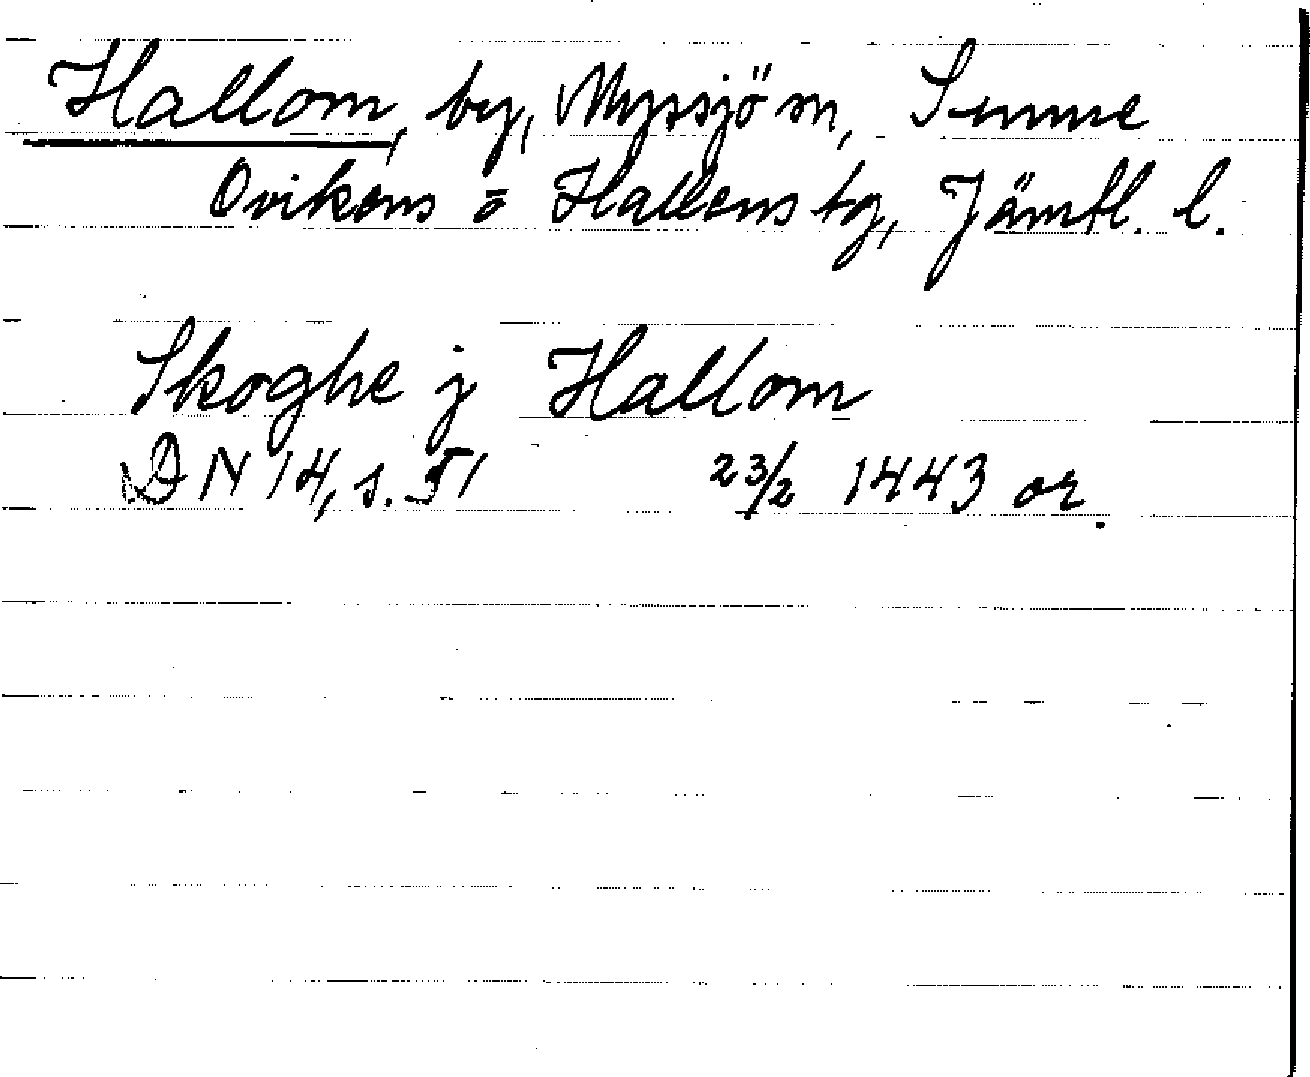 Hallom, by, Myssjö sn, Sunne
Ovikens o Hallens tg, Jämtl. l.
Skoghe j Hallom
DN 14, s. 51 23/2 1443 or.